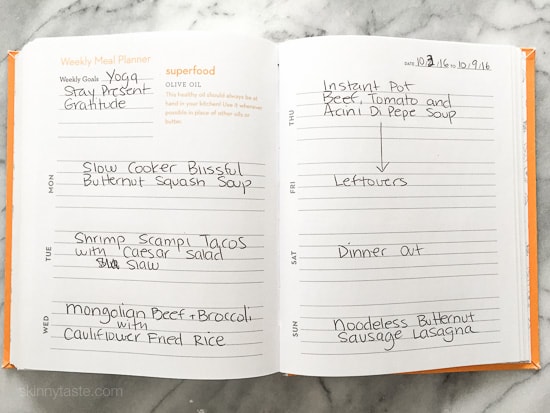 Weekly Meal Planner
Weekly Goals Yoga
Stay Present
Gratitude
superfood
OLIVE OIL
This healthy oil should always be at
hand in your kitchen! Use it whenever
possible in place of other oils or
butter.
MON
Slow Cooker Blissful
Butternut Squash Soup
TUE
Shrimp Scampi Tacos
with Caesar Salad
Slaw
WED
Mongolian Beef + Broccoli
with
Cauliflower Fried Rice
skinnytaste.com
DATE 10.3.16 TO 10.9.16
THU
Instant Pot
Beef, Tomato and
Acini Di Pepe Soup
FRI
Leftovers
SAT
Dinner Out
SUN
Noodeless Butternut
Sausage Lasagna